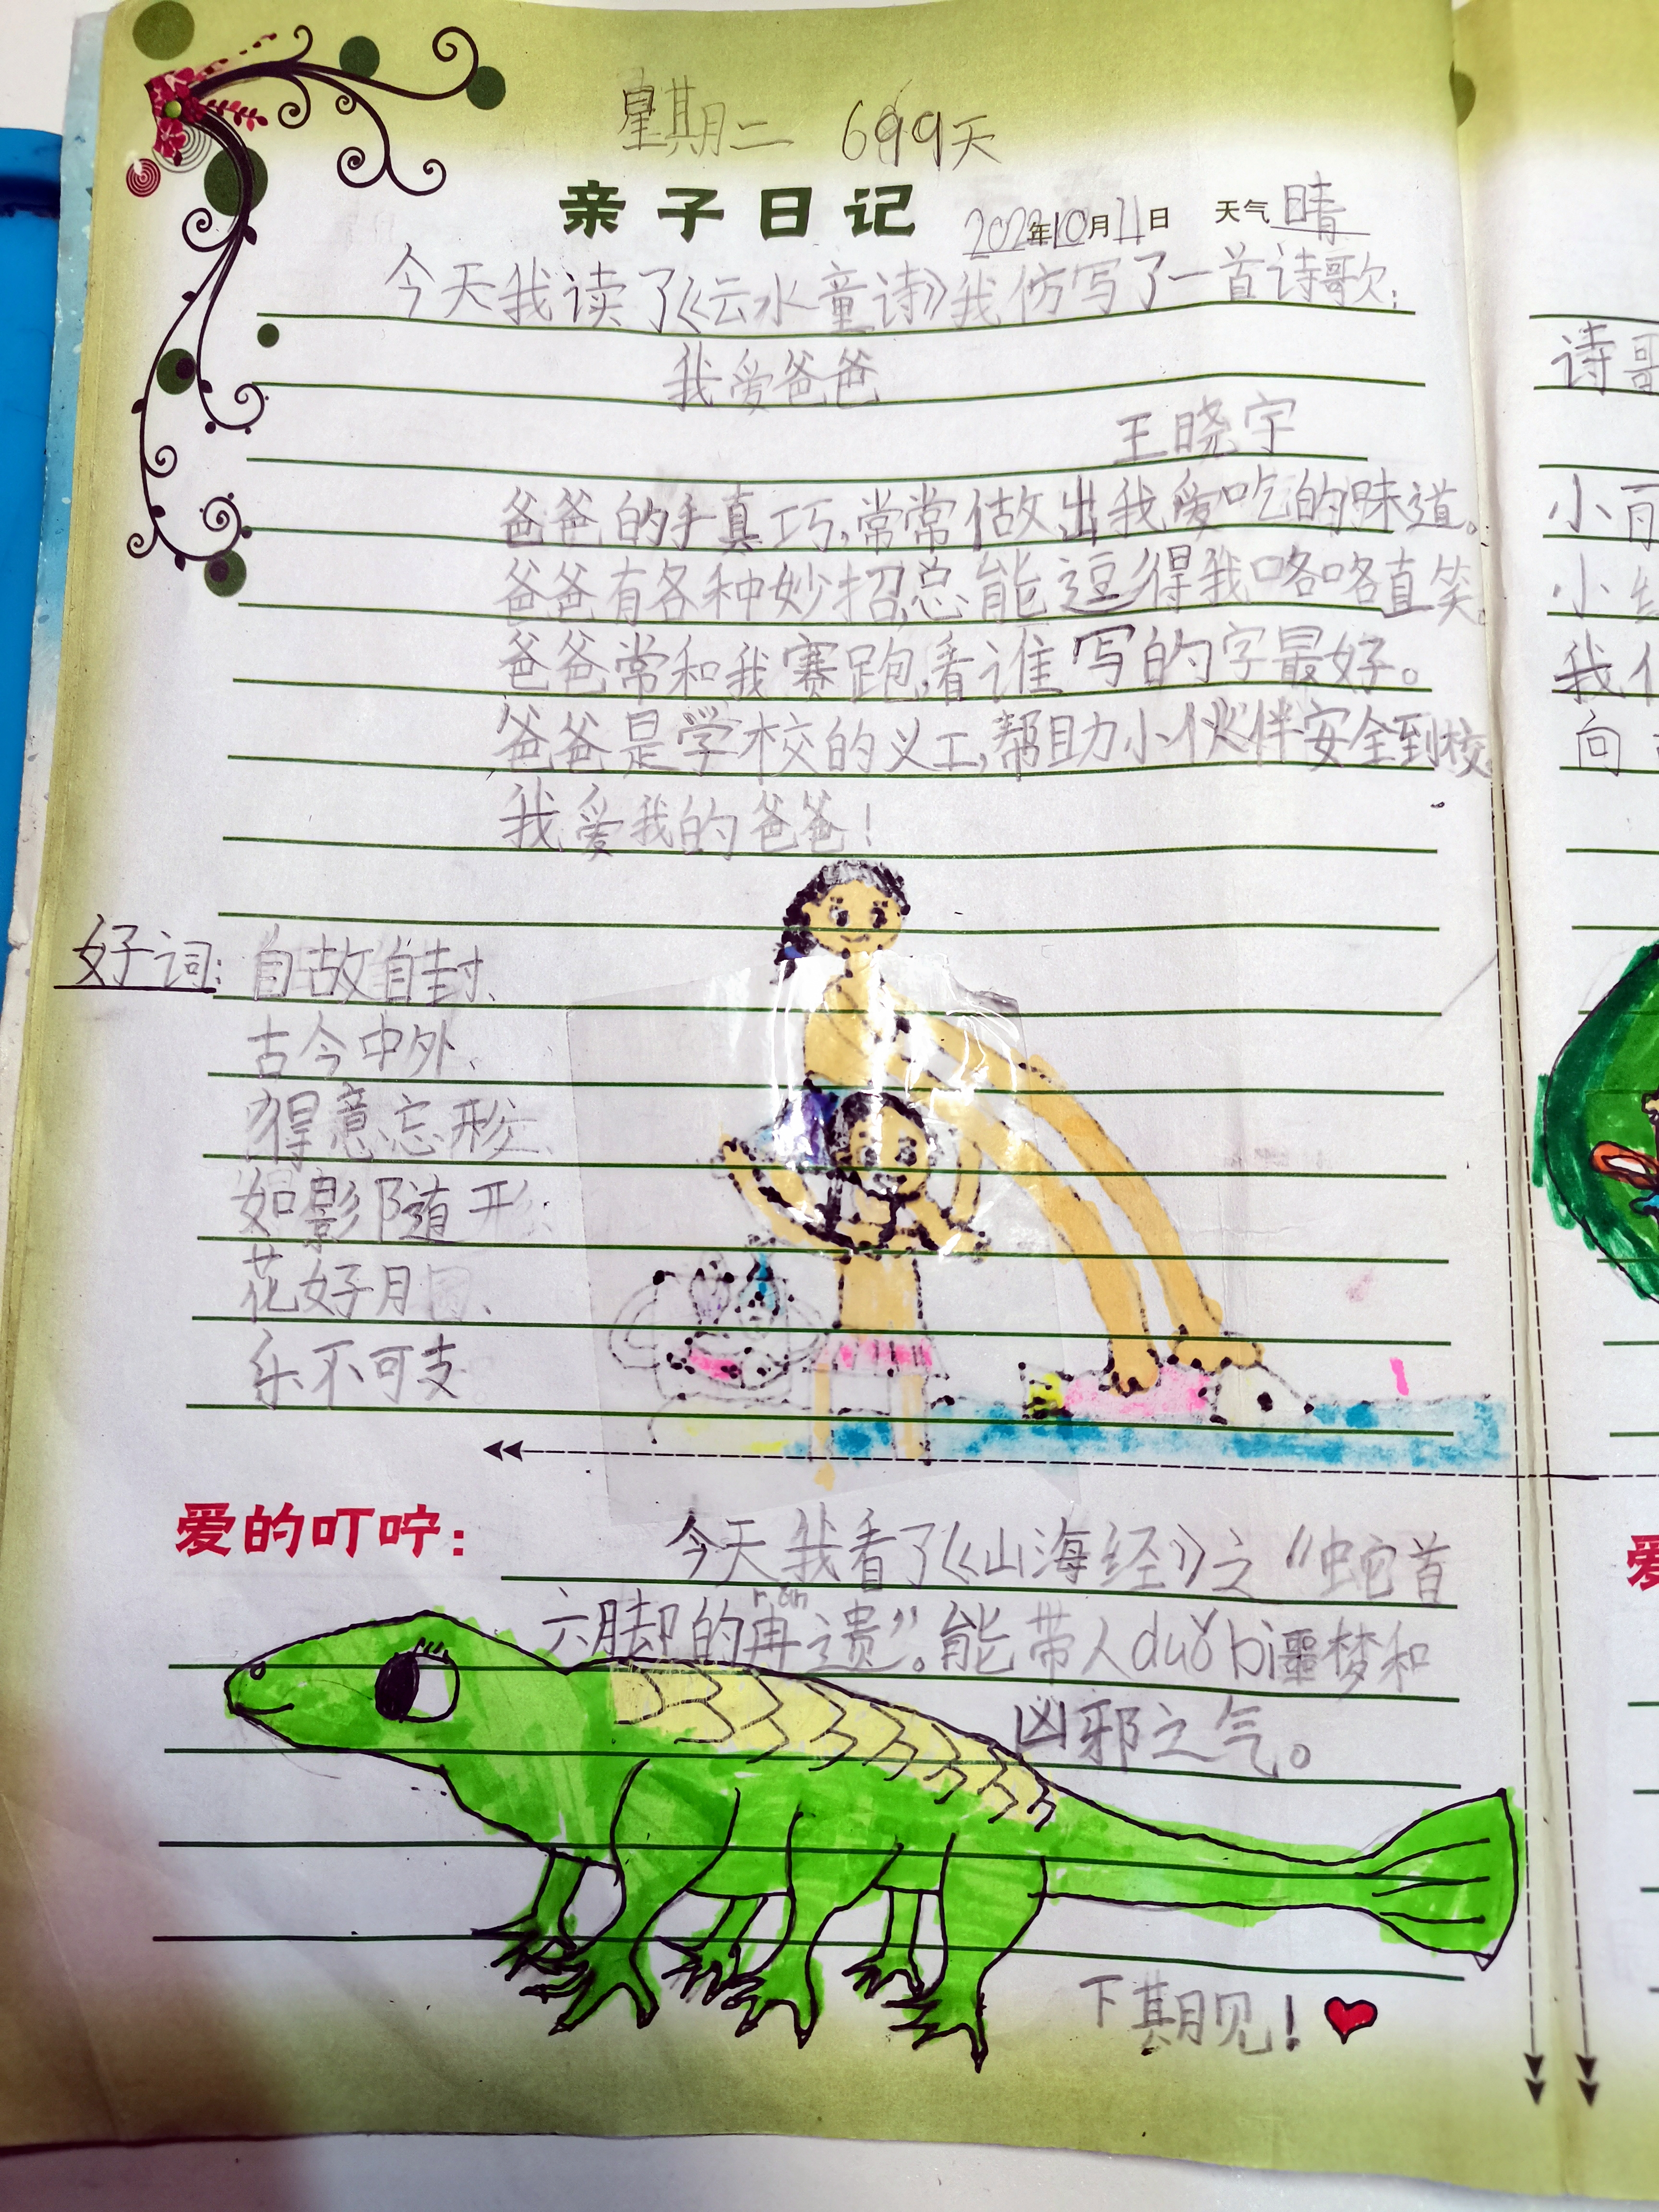 星期二 699天
亲子日记 2022年10月11日 天气 晴
今天我读了《云水童诗》我仿写了一首诗歌:
我爱爸爸
王晓宇
爸爸的手真巧,常常做出我爱吃的味道。
爸爸有各种妙招,总能逗得我咯咯直笑。
爸爸常和我赛跑,看谁写的字最好。
爸爸是学校的义工,帮助小伙伴安全到校。
我爱我的爸爸!
好词: 自故自封、
古今中外、
得意忘形、
如影随形、
花好月圆、
乐不可支
爱的叮咛: 今天我看了《山海经》之“蛇首
rǎn
六脚的冉遗”。能带人duǒ bì噩梦和
凶邪之气。
下期见!
诗歌
小
小
我们
向
爱